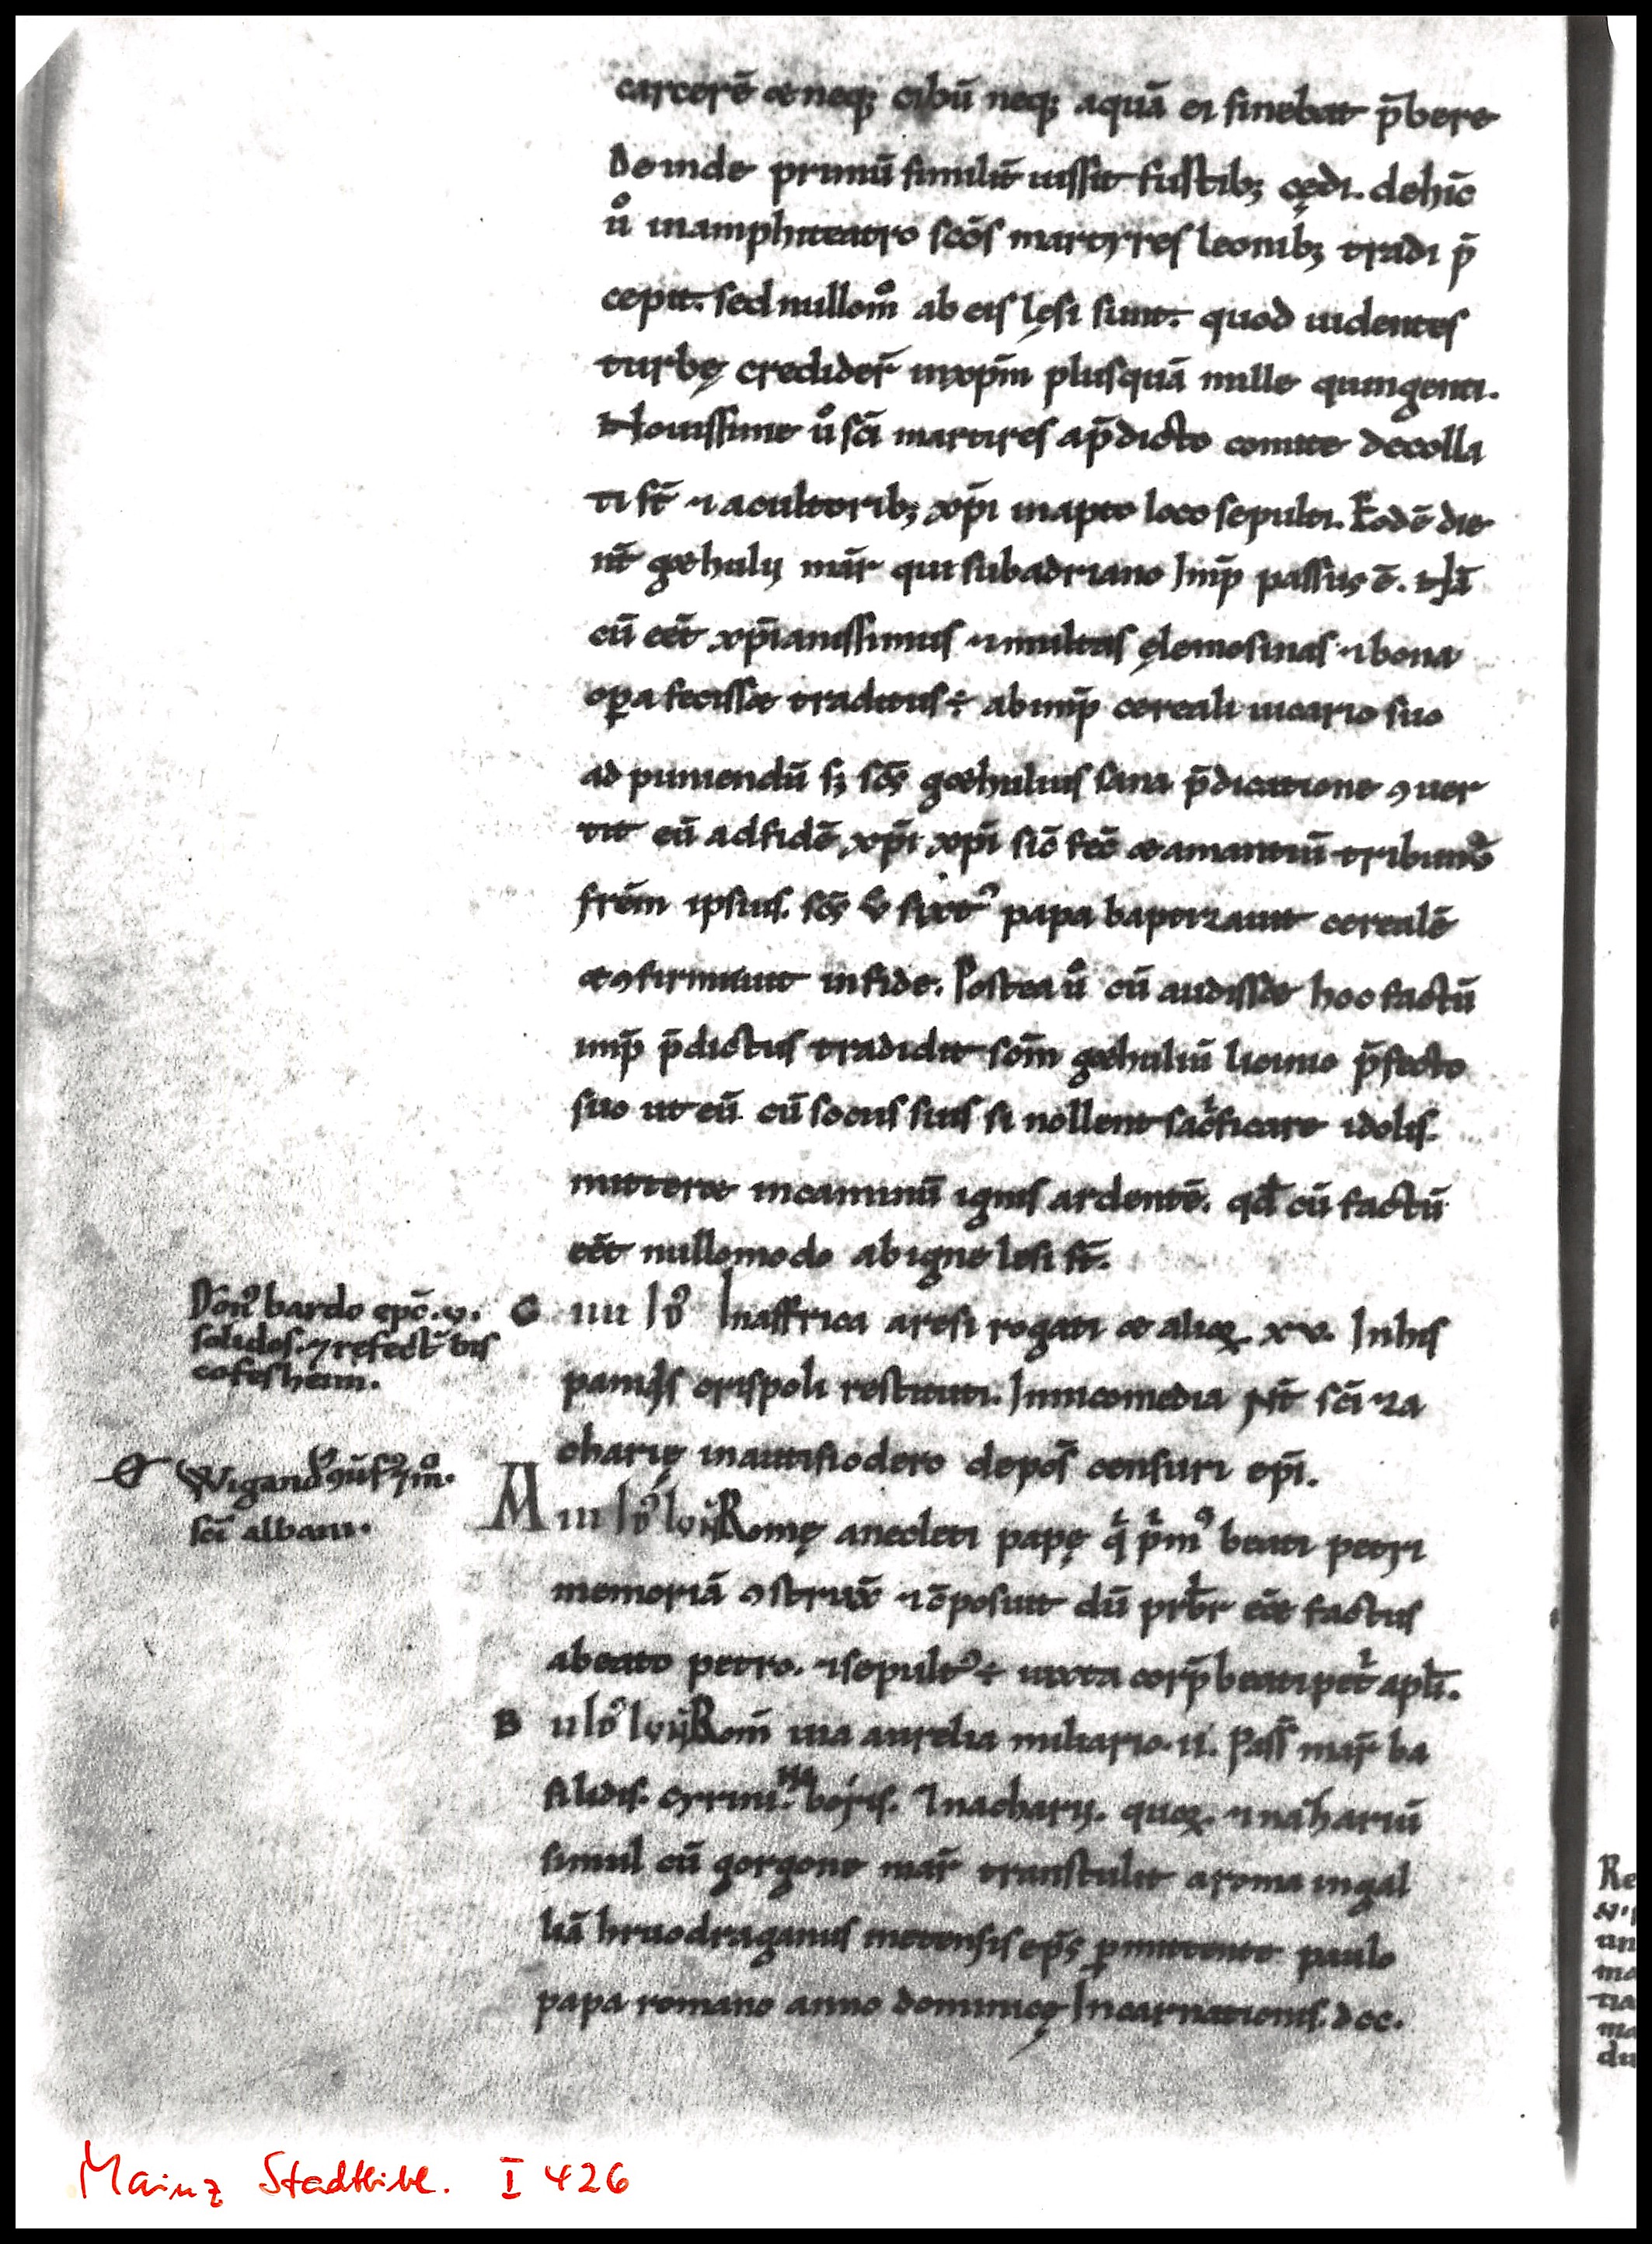 carcerē & neq; cibū neq; aquā ei sinebat p̄bere
Deinde primū similit̄ iussit fustib; cędi. dehīc
uͦ in amphiteatro sc̄os martyres leonib; tradi p̄
cepit. sed nullomͦ ab eis lęsi sunt. quod uidentes
turbę credider̄ in xp̄m plusquā mille quingenti.
Nouissime uͦ sc̄i martires a p̄dicto comite decolla
ti st̄ ⁊ a cultorib; xp̄i in apto loco sepulti. Eodē die
nt̄ gethulij mār qui sub adriano Imp̄ passus ē. Nā
cū eēt xp̄ianissimus ⁊ multas ęlemosinas ⁊ bona
opa fecisset traditus ÷ ab imp̄ cereali uicario suo
ad puniendū s; sc̄s gethulius sana p̄dicatione ꝯuer
tit eū ad fidē xp̄i xp̄i sic̄ fec̄ & amantiū tribunū
frēm ipsius. sc̄s u͛ sixtꝰ papa baptizauit cerealē
& ꝯfirmauit in fide. Postea uͦ cū audisset hoc factū
imp̄ p̄dictus tradidit sc̄m gethuliū licinio p̄fecto
suo ut eū cū sociis suis si nollent sac̄ficare idolis.
mitteret in caminū ignis ardentē. qd̄ cū factū
eēt nullomodo ab igne lesi st̄.
Donꝰ bardo epc̄. v.
solidos. ⁊ refect̄ bis
cofesheim.
G iiii Idꝰ In affrica aresi rogati & alioꝝ xv. In his
pamqͥs crispoli restituti. In nicomedia Nt̄ sc̄i za
charię in autisiodero depos̄ censuri ep̄i.
Wigandꝰ ꝯūsꝰ ⁊ mͦ.
sc̄i albani.
A iii Idꝰ Iunij Romę anecleti papę qͥ pͥmꝰ beati petri
memoriā ꝯstrux̄ ⁊ cōposuit dū prb̄r eēt factus
a beato petro. ⁊ sepultꝰ ÷ iuxta corp̄ beati petͥ apl̄i.
B ii Idꝰ Iunij Rom̄ uia aurelia miliario. ii. Pass̄ mar̄ ba
silidis. cyrini. naboris. ⁊ nacharij. quoꝝ. ⁊ nahariū
simul cū gorgone mār transtulit a roma in gal
liā hruodraganus metensis ep̄s pmittente paulo
papa romano anno dominicę Incarnationis. dcc.
Mainz Stadtbibl. I 426